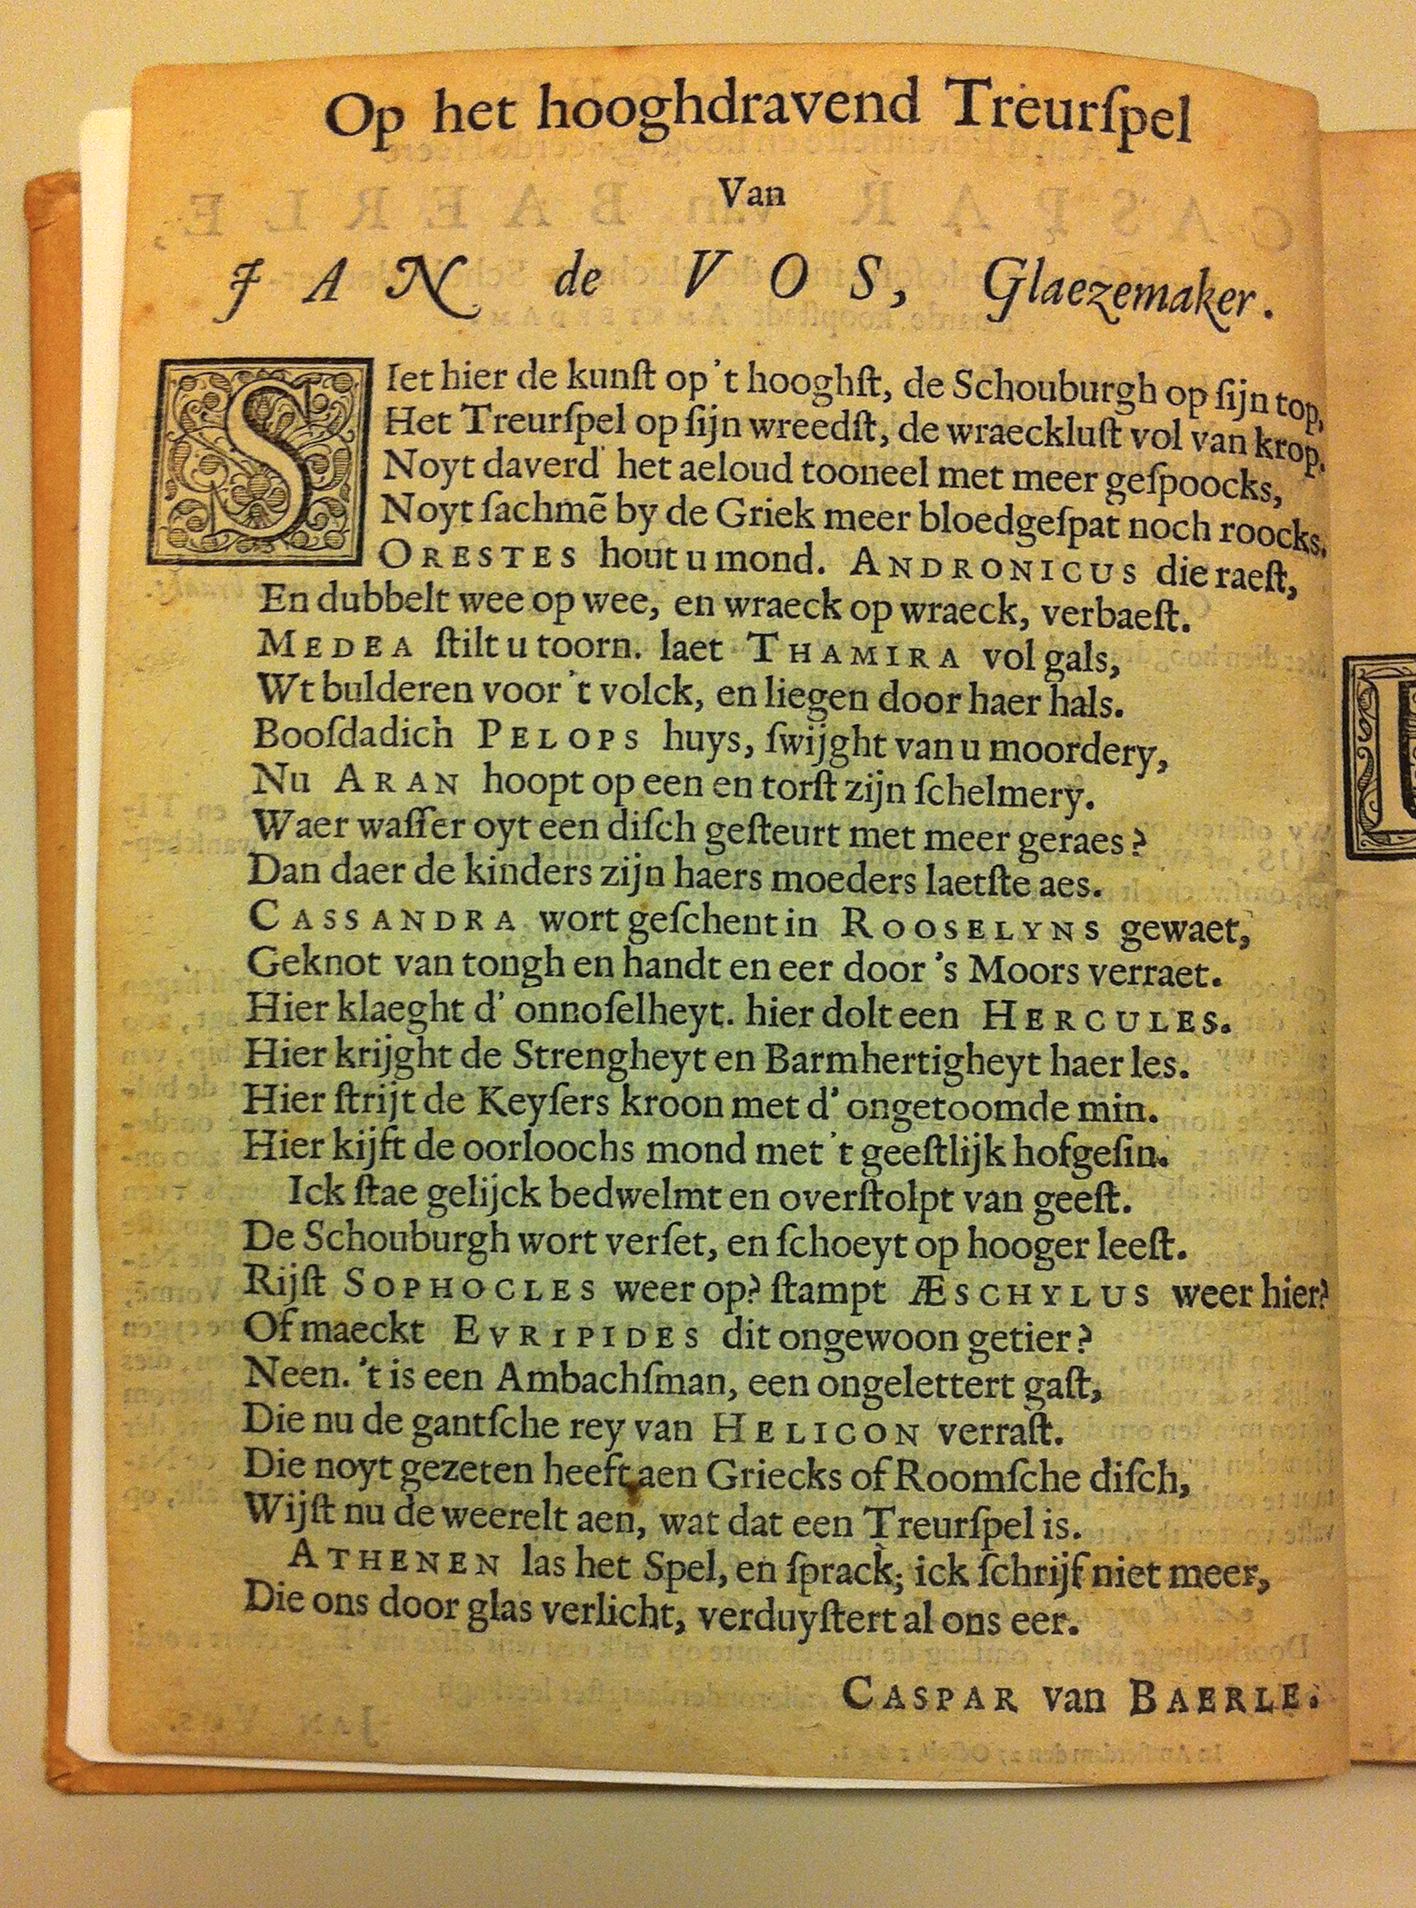 Op het hooghdravend Treurſpel
Van
JAN de VOS, Glaezemaker.
SIet hier de kunſt op 't hooghſt, de Schouburgh op ſijn top,
Het Treurſpel op ſijn wreedſt, de wraeckluſt vol van krop.
Noyt daverd' het aeloud tooneel met meer geſpoocks,
Noyt ſachmẽ by de Griek meer bloedgeſpat noch roocks.
ORESTES hout u mond. ANDRONICUS die raeſt,
En dubbelt wee op wee, en wraeck op wraeck, verbaeſt.
MEDEA ſtilt u toorn. laet THAMIRA vol gals,
Wt bulderen voor 't volck, en liegen door haer hals.
Booſdadich PELOPS huys, ſwijght van u moordery,
Nu ARAN hoopt op een en torſt zijn ſchelmery.
Waer waſſer oyt een diſch geſteurt met meer geraes?
Dan daer de kinders zijn haers moeders laetſte aes.
CASSANDRA wort geſchent in ROOSELYNS gewaet,
Geknot van tongh en handt en eer door 's Moors verraet.
Hier klaeght d' onnoſelheyt. hier dolt een HERCULES.
Hier krijght de Strengheyt en Barmhertigheyt haer les.
Hier ſtrijt de Keyſers kroon met d' ongetoomde min.
Hier kijft de oorloochs mond met 't geeſtlijk hofgeſin.
Ick ſtae gelijck bedwelmt en overſtolpt van geeſt.
De Schouburgh wort verſet, en ſchoeyt op hooger leeſt.
Rijſt SOPHOCLES weer op? ſtampt ÆSCHYLUS weer hier?
Of maeckt EVRIPIDES dit ongewoon getier?
Neen. 't is een Ambachſman, een ongelettert gaſt,
Die nu de gantſche rey van HELICON verraſt.
Die noyt gezeten heeft aen Griecks of Roomſche diſch,
Wijſt nu de weerelt aen, wat dat een Treurſpel is.
ATHENEN las het Spel, en ſprack; ick ſchrijf niet meer,
Die ons door glas verlicht, verduyſtert al ons eer.
CASPAR van BAERLE.